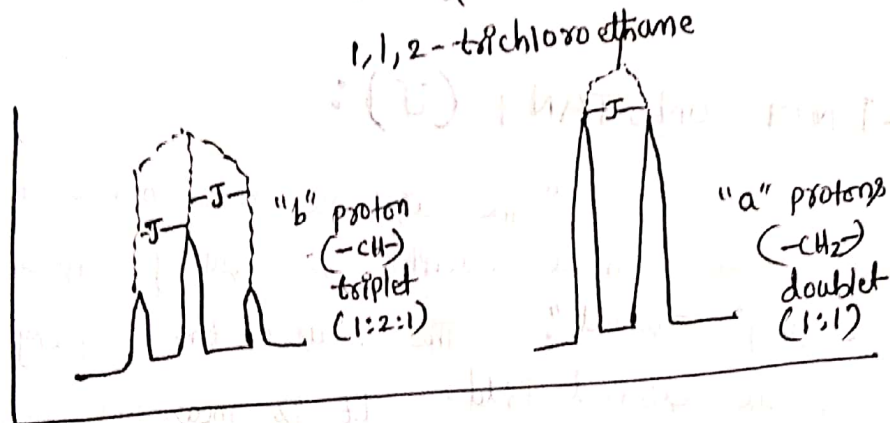 1,1,2-trichloroethane
-J-
-J-
"b" proton
(-CH-)
triplet
(1:2:1)
-J-
"a" protons
(-CH2-)
doublet
(1:1)